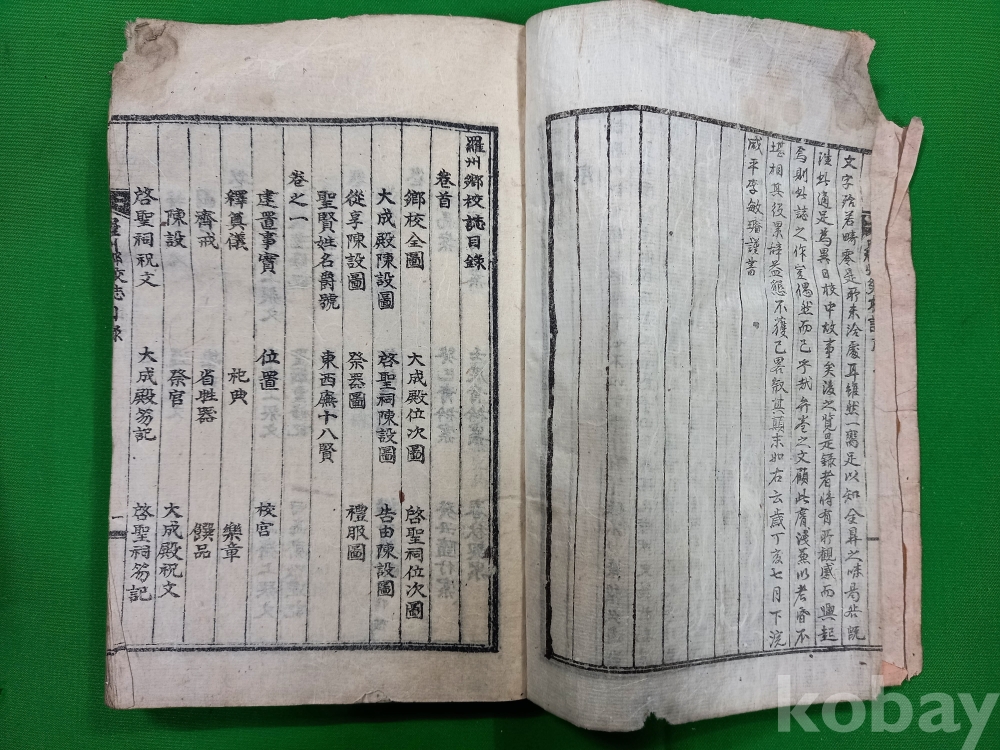 文字於若時零是所未冷處耳雖然一臠足以知全鼎之味焉
性此適足爲異日校中故事矣後之覽是錄者將有所觀感而興起
爲則此誌之作豈偶然而已乎哉弁卷之文顧此膚淺兼以老昏不
堪相其役累辭益懇不獲已畧敍其顚末如右云歲丁亥七月下浣
咸平李敏璿謹書
羅州鄕校誌目錄
卷首
鄕校全圖 大成殿位次圖 啓聖祠位次圖
大成殿陳設圖 啓聖祠陳設圖 告由陳設圖
從享陳設圖 祭器圖 禮服圖
聖賢姓名爵號 東西廡十八賢
卷之一
建置事實 位置 校宮
釋奠儀 祀典 樂章
齋戒 省牲器 饌品
陳設 祭官 大成殿祝文
啓聖祠祝文 大成殿笏記 啓聖祠笏記
羅州鄕校誌目錄
一
kobay